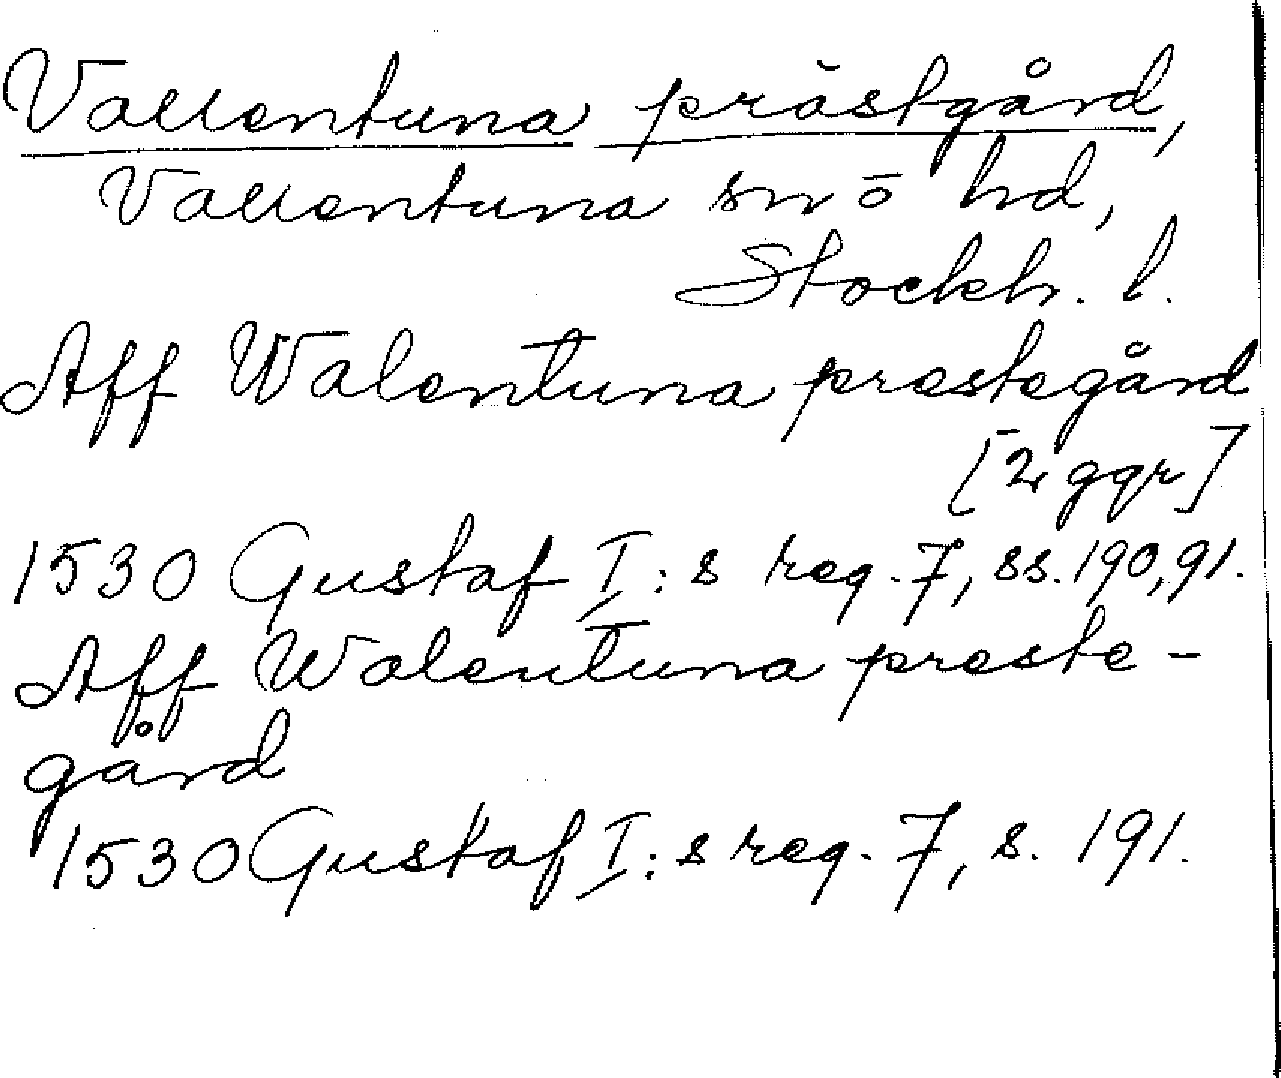 Vallentuna prästgård,
Vallentuna sn ō hd,
Stockh. l.
Aff Walentuna prestegård
[2 ggr]
1530 Gustaf I:s reg. 7, ss. 190, 91.
Aff Walentuna preste-
gård
1530 Gustaf I:s reg. 7, s. 191.